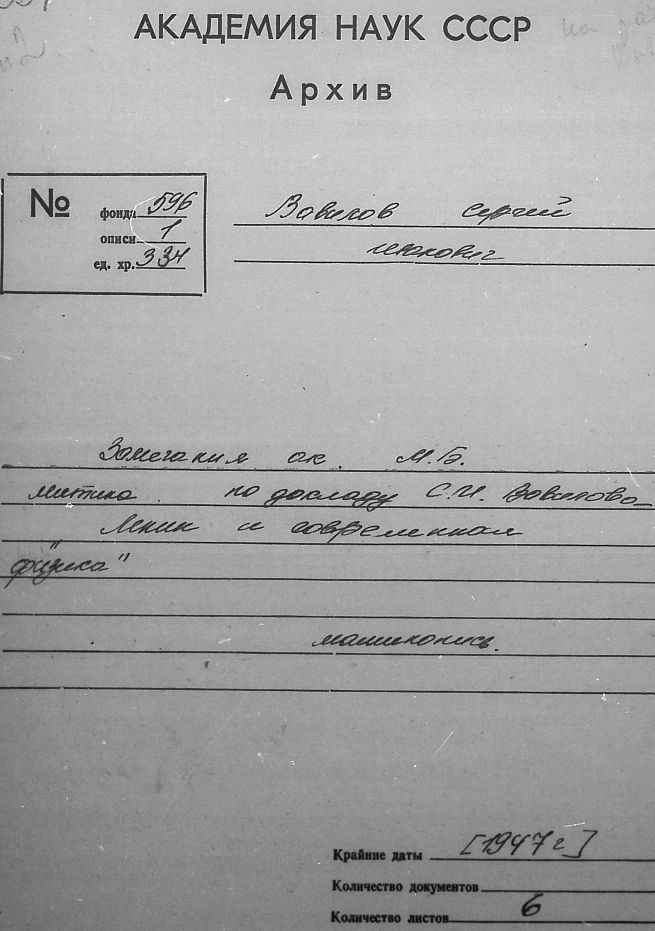 АКАДЕМИЯ НАУК СССР
Архив
№
фонда 596
описи 1
ед. хр. 334
Вавилов Сергей
Иванович
Замечания ак. М.Б.
Митина по докладу С.И. Вавилова
„Ленин и современная
физика"
машинопись.
Крайние даты [1947 г]
Количество документов
Количество листов 6